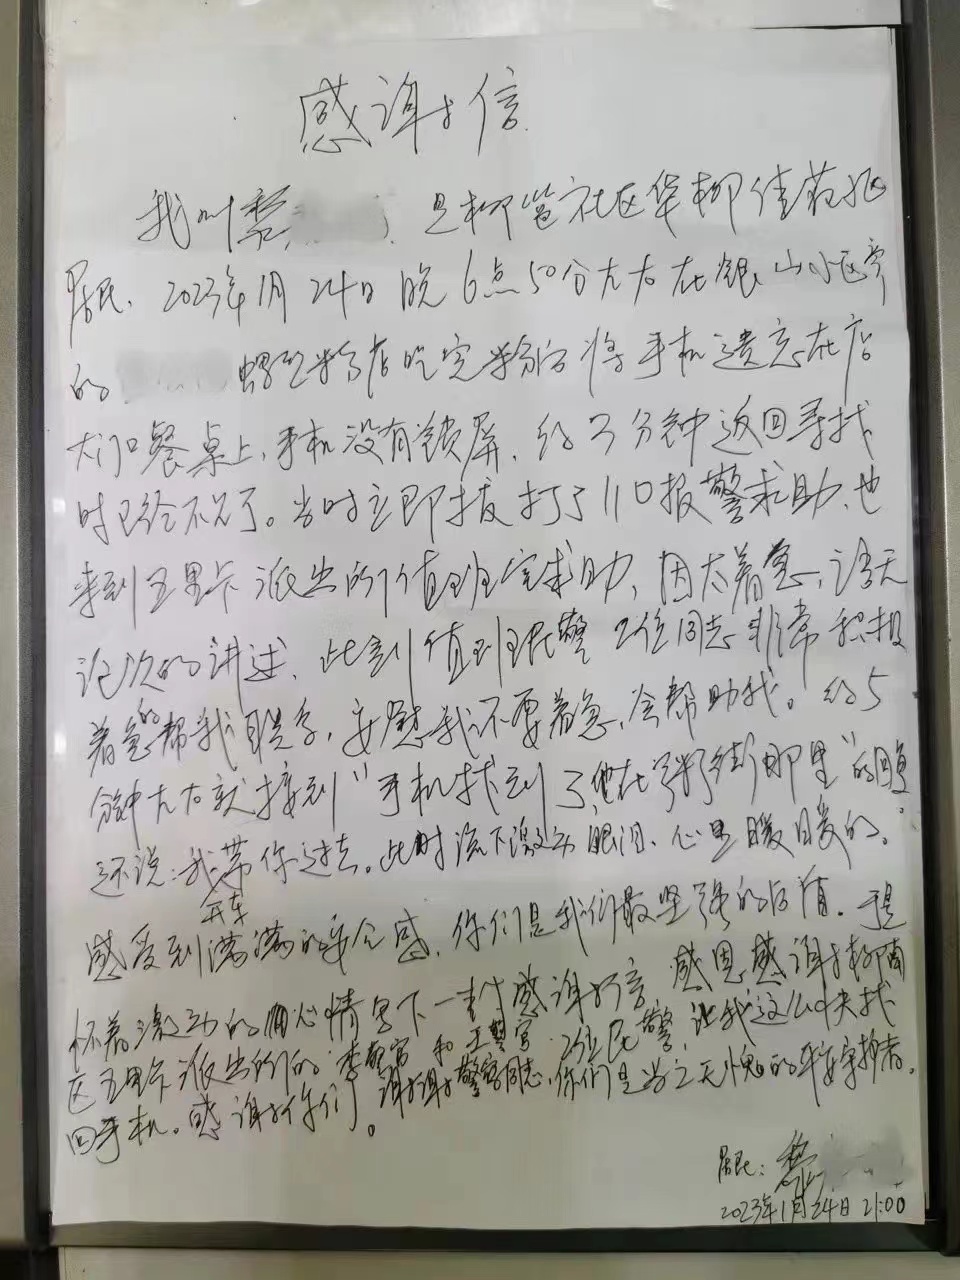 感谢信
我叫黎 是柳邕社区华柳佳苑小区
居民、2023年1月24日晚6点50分左右在银山小区旁
的 螺丝粉店吃完粉后将手机遗忘在店
大门口餐桌上、手机没有锁屏、约3分钟返回寻找
时已经不见了。当时立即拔打了110报警求助、也
来到五里卡派出所值班室求助、因太着急、语无
论次的讲述、此刻值班民警2位同志非常积极
着急的帮我联系，安慰我不要着急、会帮助我。约5
分钟左右就接到“手机找到了，他在 街那里”的回复
还说：我开车带你过去。此时流下激动眼泪、心里暖暖的。
感受到满满的安全感、你们是我们最坚强的后盾．于是
怀着激动的心情写下一封感谢信 感恩感谢柳南
区五里卡派出所的李警官和王警官．2位民警，让我这么快找
回手机。感谢你们。谢谢警官同志，你们是当之无愧的平安守护者。
居民：黎
2023年1月24日 21:00